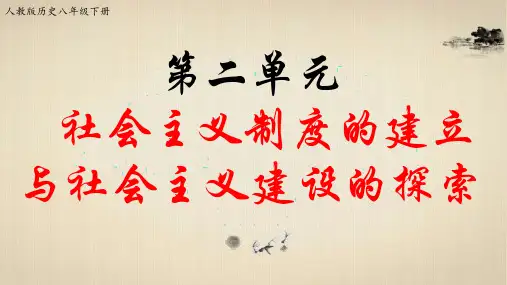 人教版历史八年级下册
第二单元
社会主义制度的建立
与社会主义建设的探索